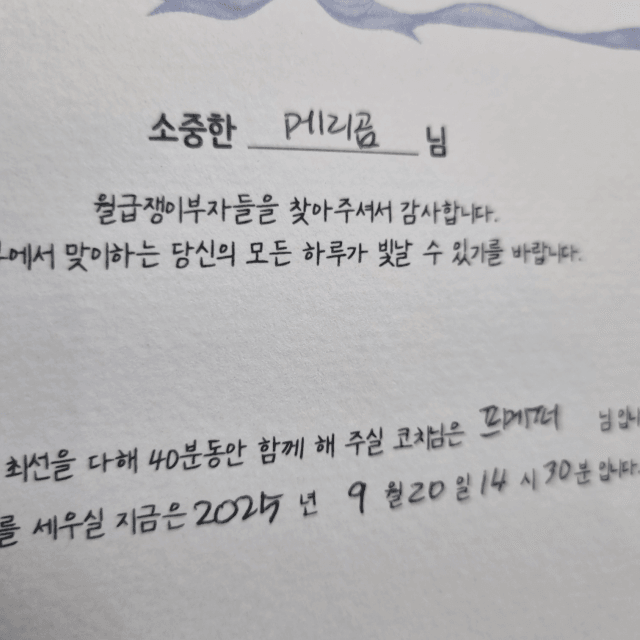 소중한 페리곰 님
월급쟁이부자들을 찾아주셔서 감사합니다.
에서 맞이하는 당신의 모든 하루가 빛날 수 있기를 바랍니다.
최선을 다해 40분동안 함께 해 주실 코치님은 프메퍼
를 세우실 지금은 2025 년 9 월 20 일 14 시 30 분 입니다.